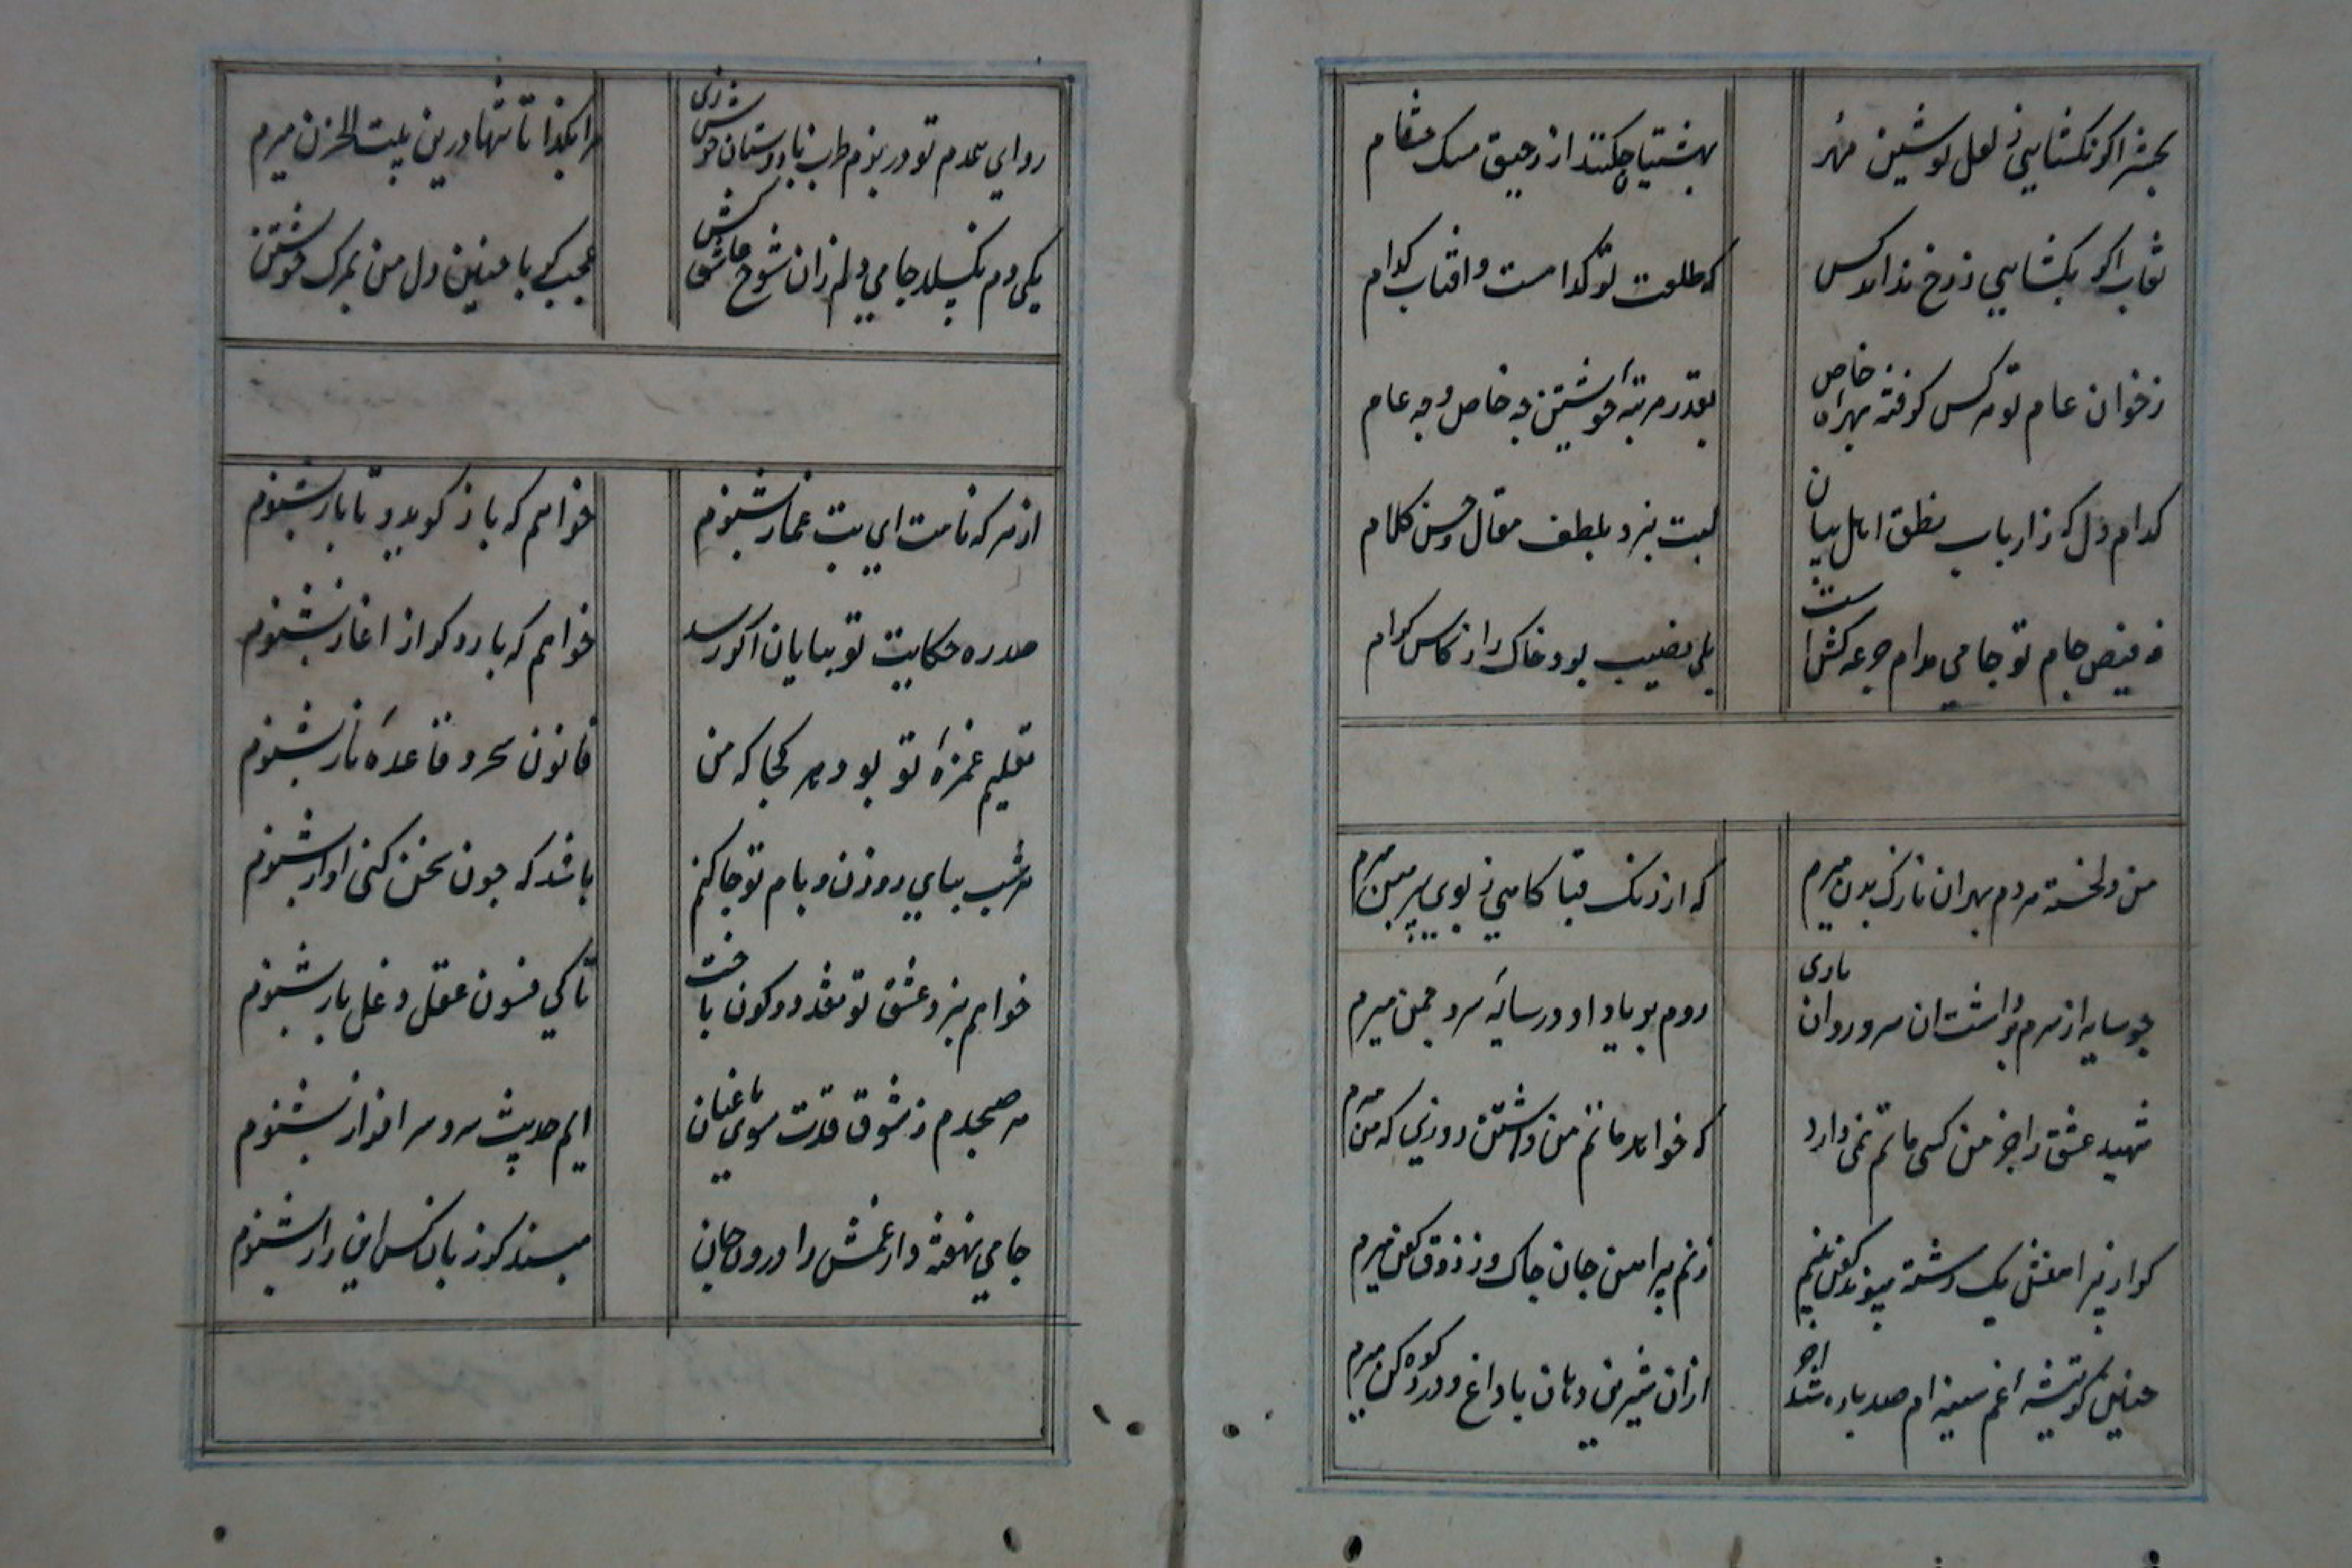 بحشر اکر نکشایی ز لعل نوشین مهر
بهشتیان چکنند از رحیق مسک ختام
نقاب اکر بکشایی ز رخ نداند کس
که طلعت تو کدامست و افتاب کدام
ز خوان عام تو هر کس کرفته بهره خاص
بقدر مرتبه خویشتن چه خاص و چه عام
کدام دل که ز ارباب نطق اهل بیان
لبت نبرد بلطف مقال و حسن کلام
ز فیض جام تو جامی مدام جرعه کش است
بلی نصیب بود خاک را ز کاس کرام
من دلخسته مردم بهر ان نازک بدن میرم
که از رنک قبا کاهی ز بوی پیرهن میرم
چو سایه از سرم برداشت ان سرو روان باری
روم بر یاد او در سایه سرو چمن میرم
شهید عشق را جز من کسی ماتم نمی دارد
که خواهد ماتم من داشتن روزی که من میرم
کر از پیراهنش یک رشته پیوند کفن بینم
زنم پیراهن جان چاک وز ذوق کفن میرم
چنین کز تیشه غم سینه ام صد پاره شد اخر
ازان شیرین دهان با داغ و درد کوه کن میرم
رو ای همدم تو در بزم طرب با دوستان خوش زی
مرا بکذار تا تنها درین بیت الحزن میرم
یکی دم نکسلد جامی دلم زان شوخ عاشق کش
عجب کر با چنین دل من بمرک خویشتن میرم
از هر که نامت ای بت غماز بشنوم
خواهم که باز کوید و تا باز بشنوم
صد ره حکایت تو بپایان اکر رسد
خواهم که بار دکر از اغاز بشنوم
تعلیم غمزه تو بود هر کجا که من
قانون سحر و قاعده ناز بشنوم
هر شب بپای روزن و بام تو جا کنم
باشد که چون سخن کنی اواز بشنوم
خواهم بنرد عشق تو نقد دو کون باخت
تا کی فسون عقل دغل باز بشنوم
هر صبحدم ز شوق قدت سوی باغبان
ایم حدیث سرو سرافراز بشنوم
جامی نهفته دار غمش را درون جان
مپسند کز زبان کس این راز بشنوم